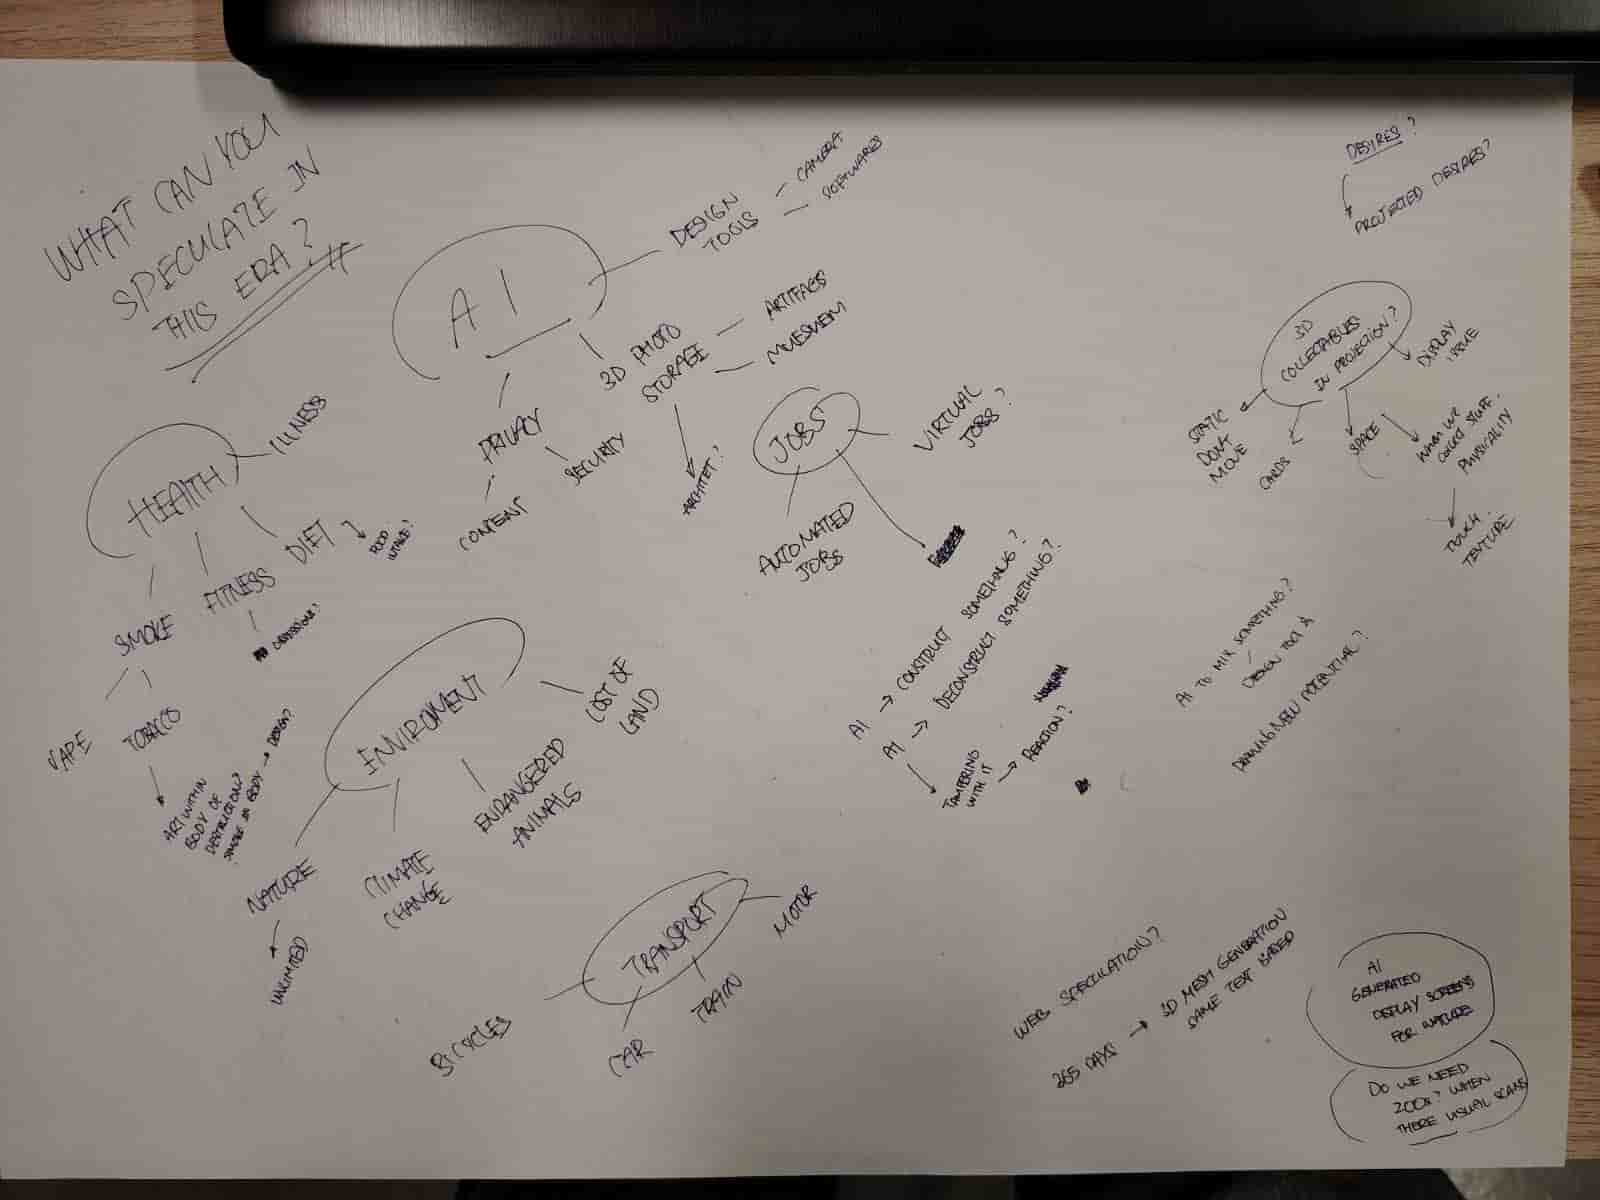 WHAT CAN YOU
SPECULATE IN
THIS ERA?
AI
DESIGN
TOOLS
CAMERA
SOFTWARES
3D PHOTO
STORAGE
ARTIFACS
MUESUEM
ARCHITET?
PRIVACY
SECURITY
CONTENT
HEALTH
ILLNESS
DIET
FOOD
INTAKE?
FITNESS
OBSESSIONS?
SMOKE
VAPE
TOBACCO
ART WITHIN
BODY OF
DESTRUCTION?
SMOKE IN BODY → DESIGN?
JOBS
VIRTUAL
JOBS?
AUTOMATED
JOBS
ENVIROMENT
COST OF
LAND
ENDANGERED
ANIMALS
CLIMATE
CHANGE
NATURE
UNLIMITED
TRANSPORT
MOTOR
TRAIN
CAR
BICYCLES
AI → CONSTRUCT SOMETHING?
AI → DECONSTRUCT SOMETHING?
TAMPERING
WITH IT → REACTION?
DESIRES?
PROJECTED DESIRES?
3D
COLLECTABLES
IN PROJECTION?
DISPLAY
ISSUE
STATIC
DONT
MOVE
CARDS
SPACE
WHEN WE
COLLECT STUFF.
PHYSICALITY
TOUCH.
TEXTURE
AI TO MIX SOMETHING?
DESIGN TOOL
NEW POTENTIAL?
WEB SPECULATION?
365 DAYS → 3D MESH GENERATION
SAME TEXT BASED
AI
GENERATED
DISPLAY SCREENS
FOR NATURE
DO WE NEED
ZOOS? WHEN
THERE VISUAL SCANS